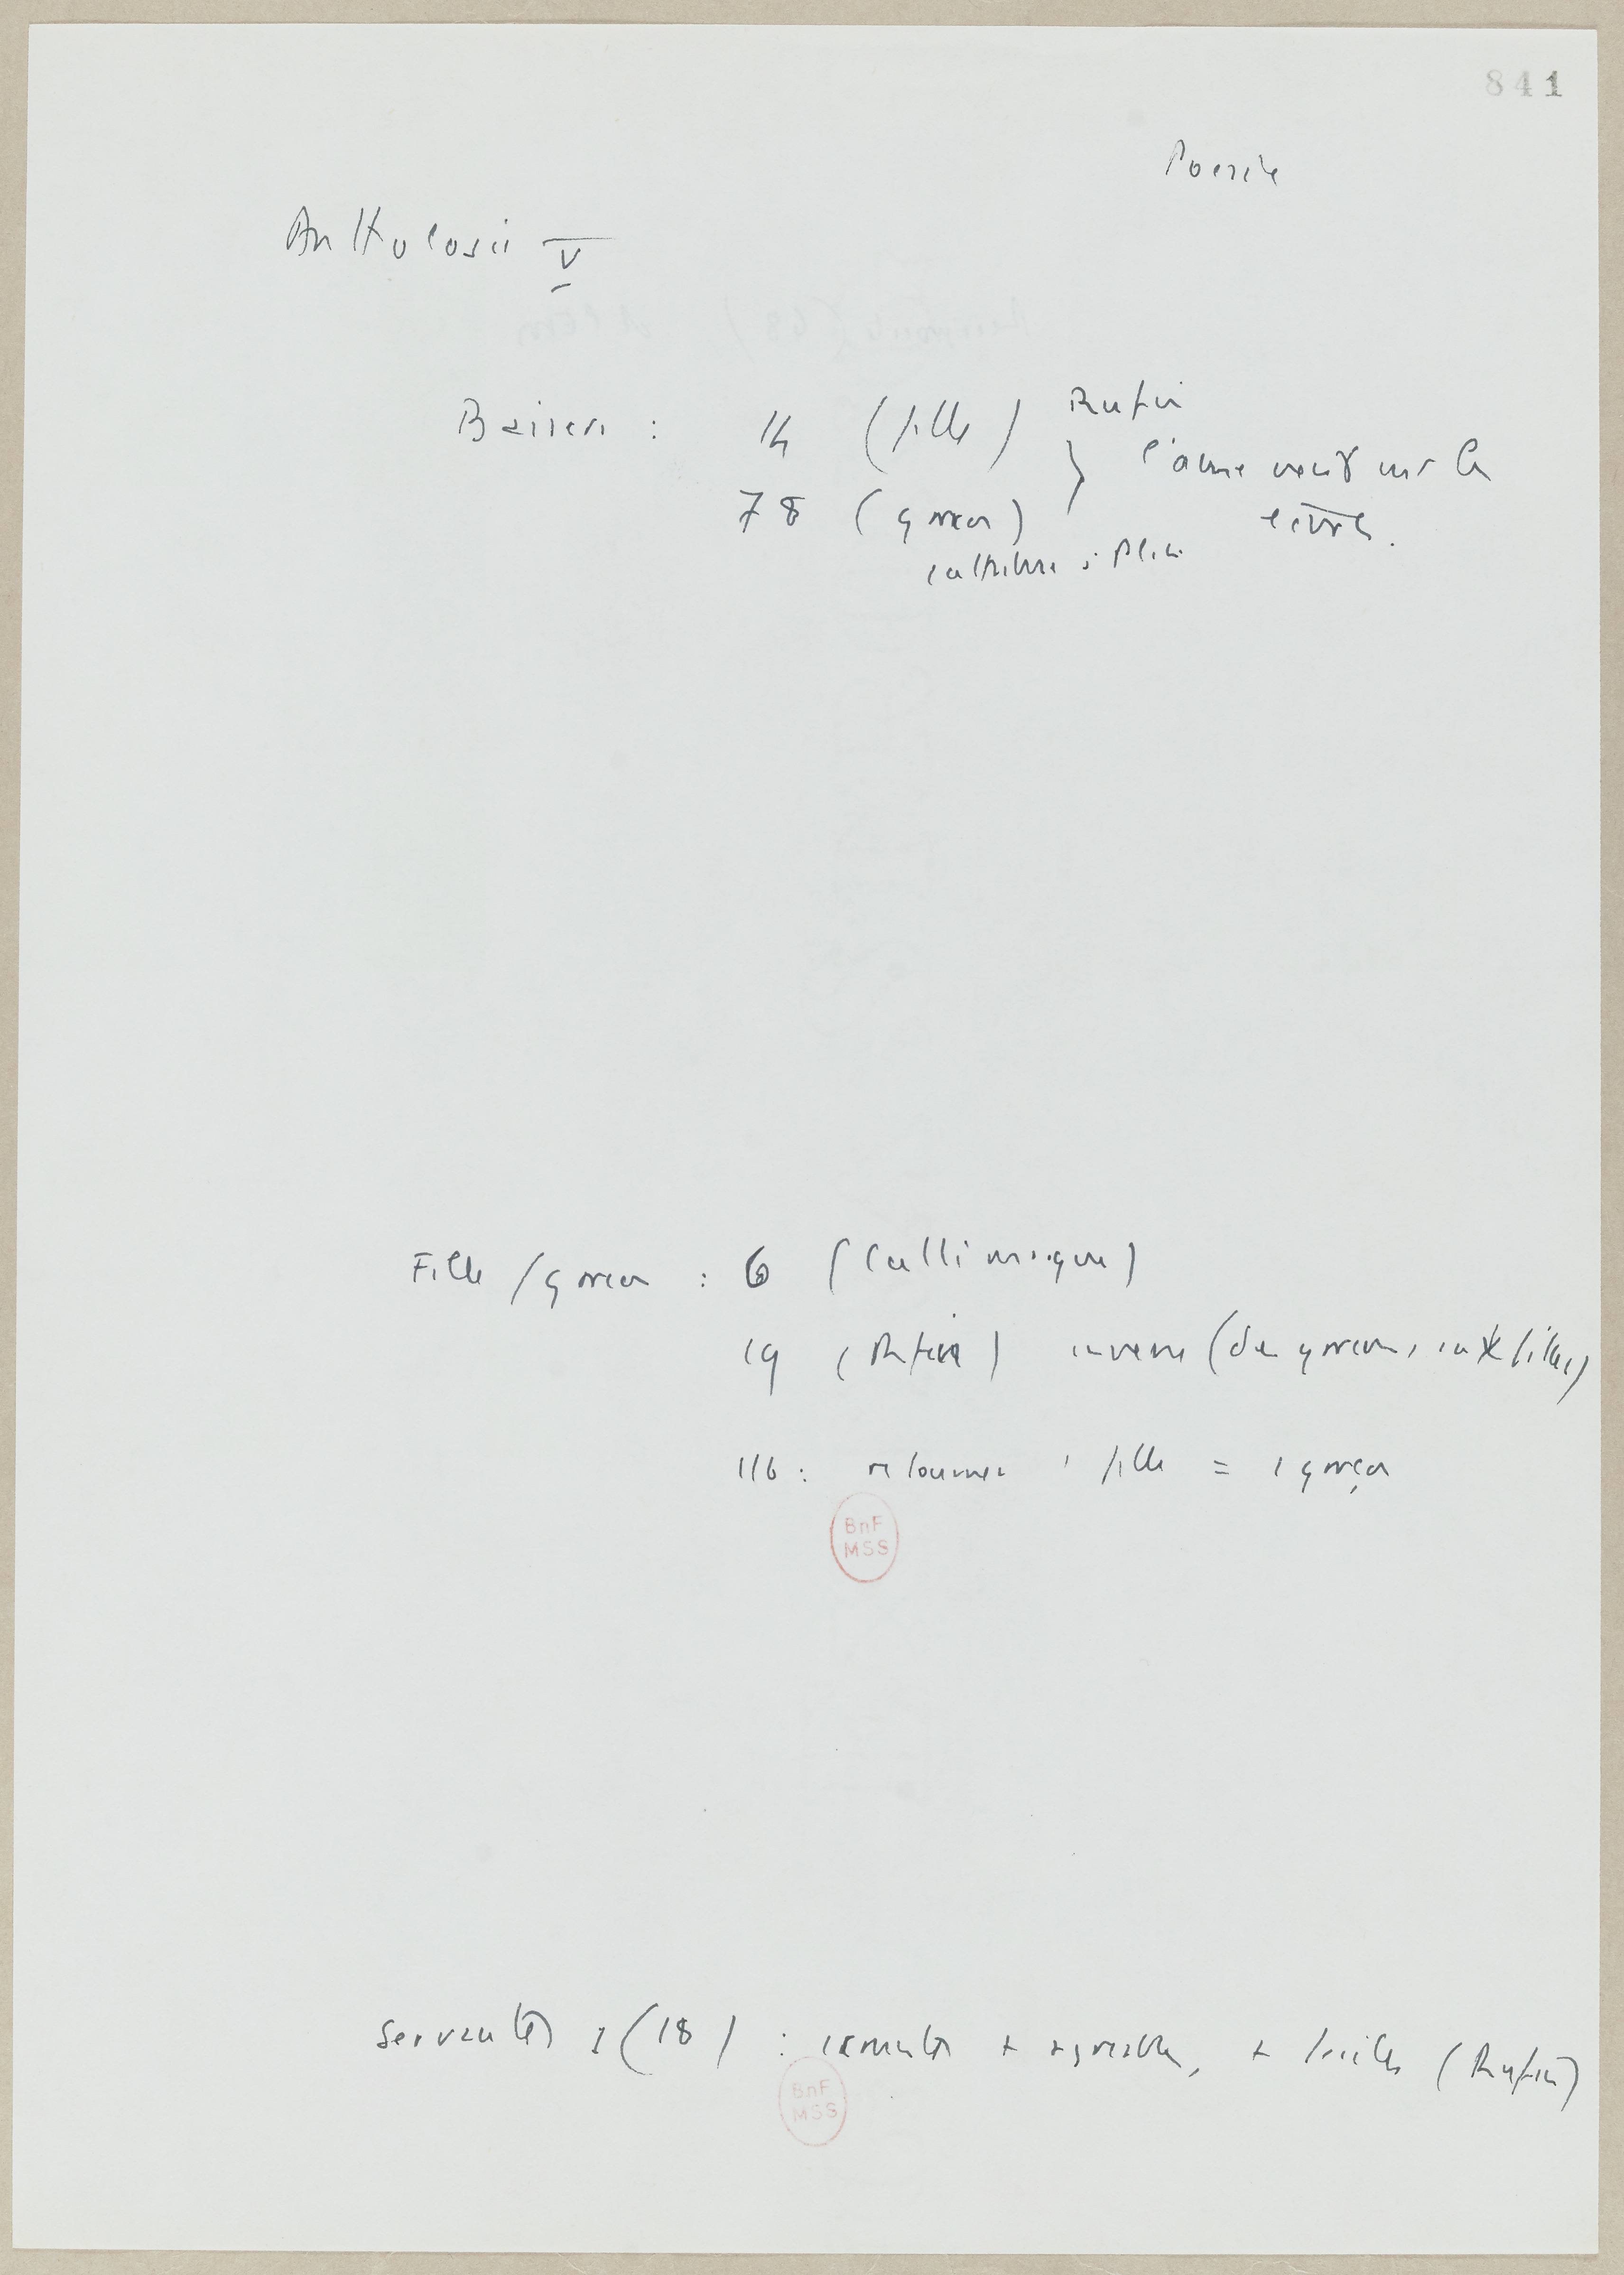 841
Poesie
Anthologie V
Baisers : 14 (fille) Rufin
78 (garçon) } l'âme vient sur les
lèvres.
attribué à Platon
Fille / garçon : 6 (Callimaque)
19 (Rufin) inverse (des garçons, aux filles)
116 : retourner 1 fille = 1 garçon
Servantes (18) : + agréables, + faciles (Rufin)
BnF
MSS
BnF
MSS